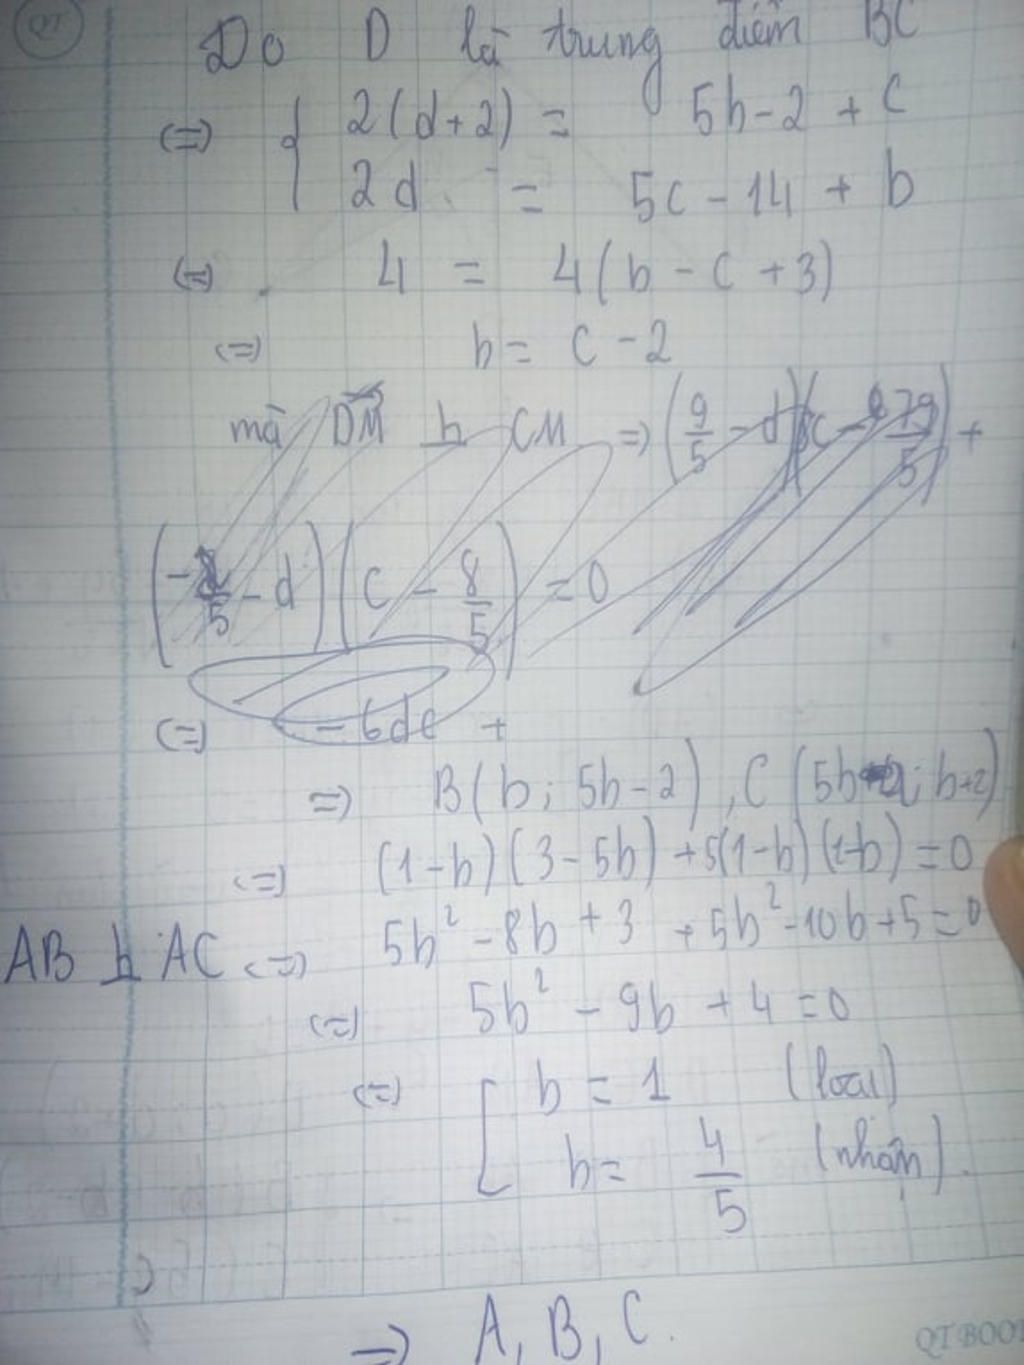 QT
Do D là trung điểm BC
(=) { 2(d+2) = 5b-2 + c
2d = 5c - 14 + b
(=) 4 = 4(b - c + 3)
(=) b = c - 2
mà DM ⊥ CM => (9/5 - d)( c - 79/5) +
( - /5 - d)(c - 8/5) = 0
(=) - 6dc +
=) B(b; 5b-2), C (5b ; b+2)
(=) (1-b)(3-5b) + 5(1-b)(1-b) = 0
AB ⊥ AC (=) 5b² - 8b + 3 + 5b² - 10b + 5 = 0
(=) 5b² - 9b + 4 = 0
(=) [ b = 1 (loại)
b = 4/5 (nhận).
=) A, B, C.
QT BOO